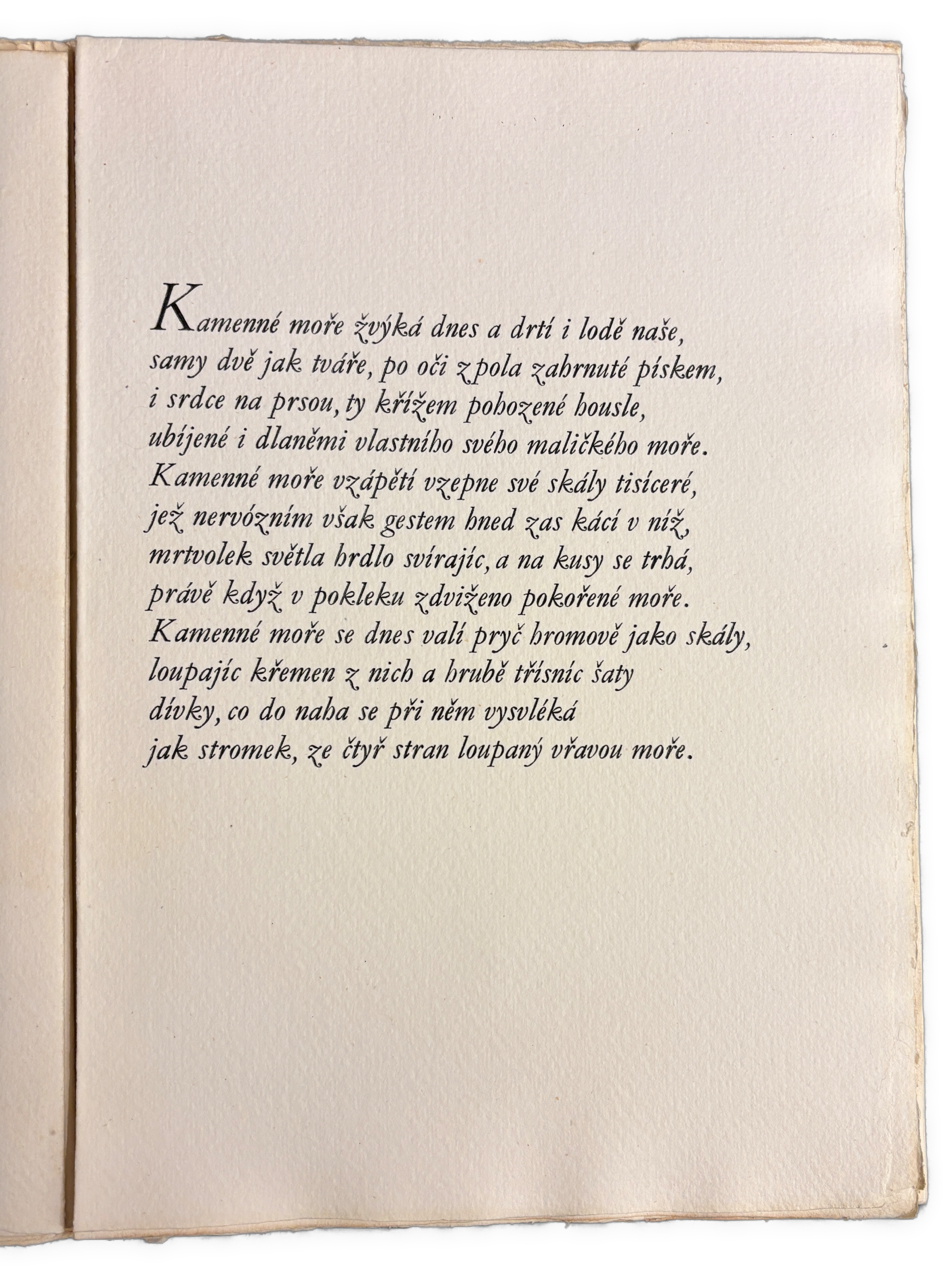 Kamenné moře žvýká dnes a drtí i lodě naše,
samy dvě jak tváře, po oči zpola zahrnuté pískem,
i srdce na prsou, ty křížem pohozené housle,
ubíjené i dlaněmi vlastního svého maličkého moře.
Kamenné moře vzápětí vzepne své skály tisíceré,
jež nervózním však gestem hned zas kácí v níž,
mrtvolek světla hrdlo svírajíc, a na kusy se trhá,
právě když v pokleku zdviženo pokořené moře.
Kamenné moře se dnes valí pryč hromově jako skály,
loupajíc křemen z nich a hrubě třísníc šaty
dívky, co do naha se při něm vysvléká
jak stromek, ze čtyř stran loupaný vřavou moře.